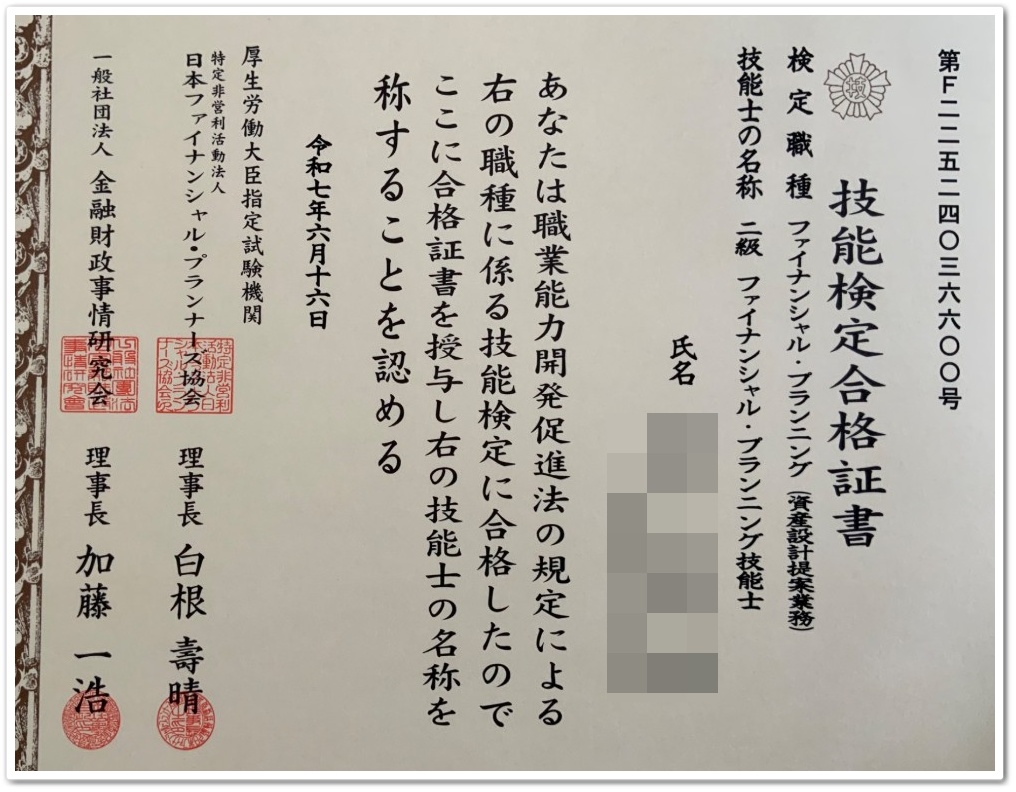 第F二二五二四〇三六六〇〇号
技能検定合格証書
検定職種 ファイナンシャル・プランニング（資産設計提案業務）
技能士の名称 二級 ファイナンシャル・プランニング技能士
氏名
あなたは職業能力開発促進法の規定による
右の職種に係る技能検定に合格したので
ここに合格証書を授与し右の技能士の名称を
称することを認める
令和七年六月十六日
厚生労働大臣指定試験機関
特定非営利活動法人
日本ファイナンシャル・プランナーズ協会 理事長 白根 壽晴
一般社団法人 金融財政事情研究会 理事長 加藤 一浩